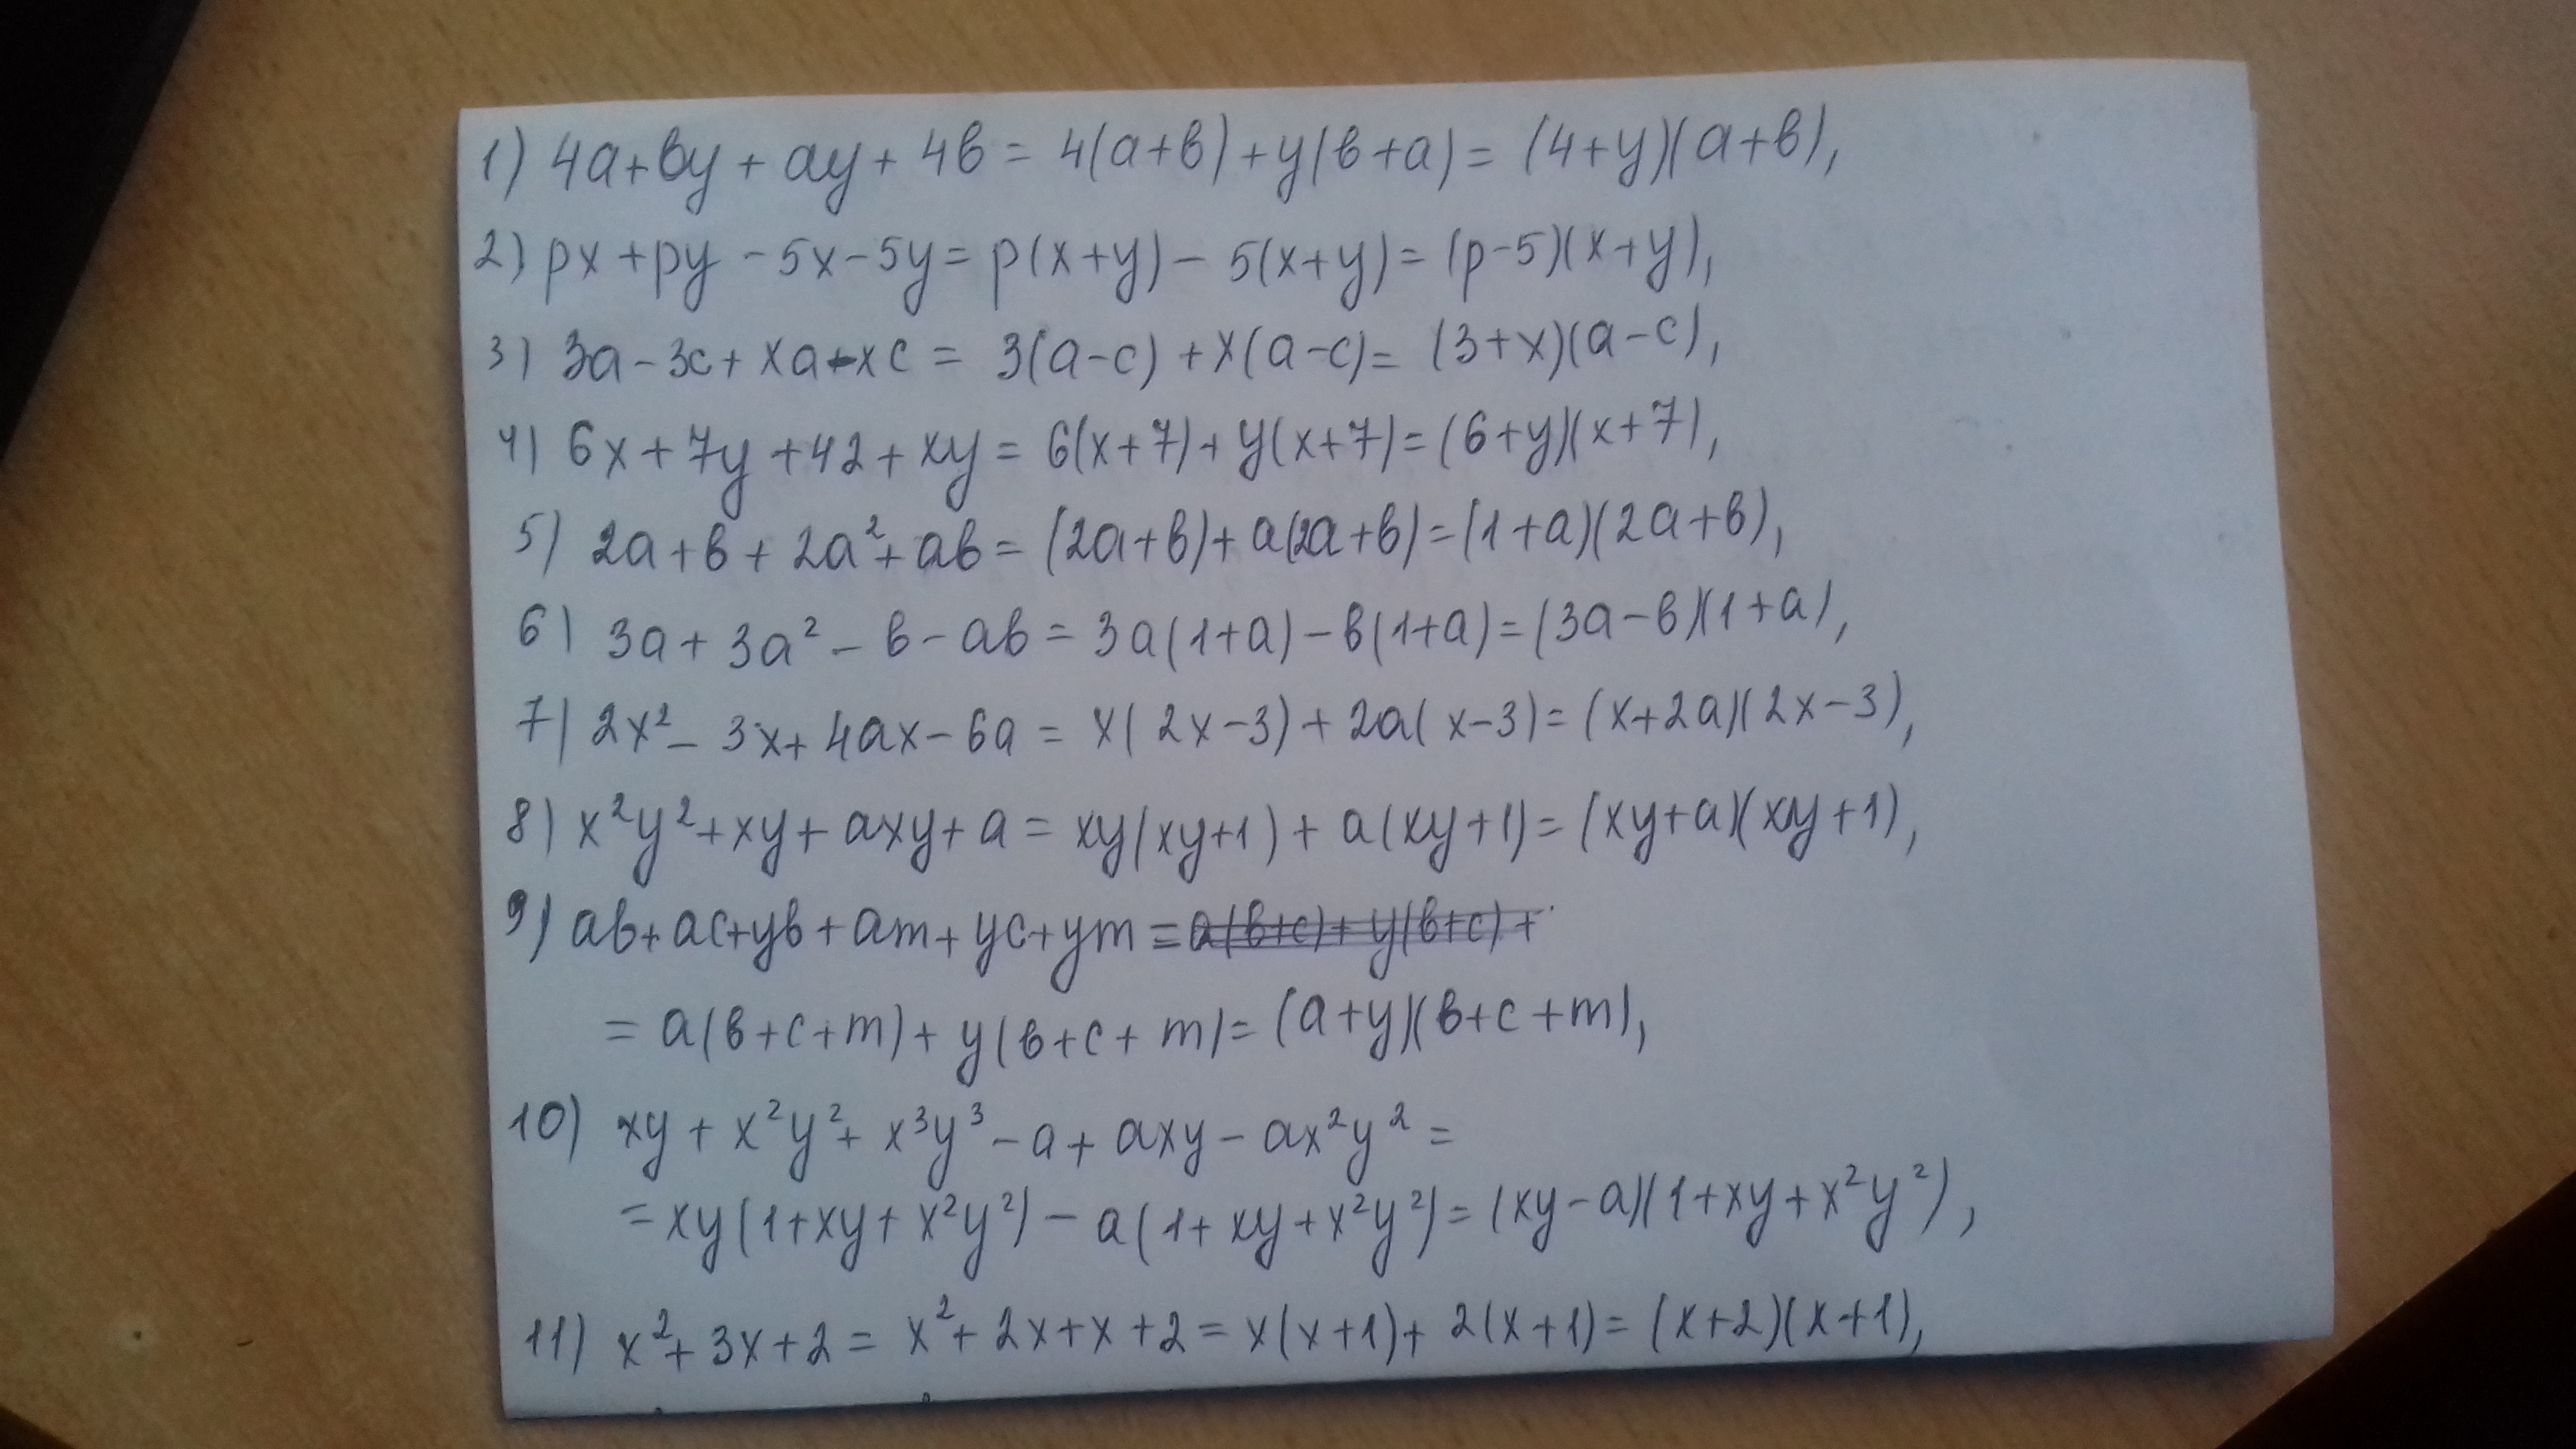 1) 4a+by+ay+4b = 4(a+b)+y(b+a) = (4+y)(a+b),
2) px+py-5x-5y = p(x+y)-5(x+y) = (p-5)(x+y),
3) 3a-3c+xa-xc = 3(a-c)+x(a-c) = (3+x)(a-c),
4) 6x+7y+42+xy = 6(x+7)+y(x+7) = (6+y)(x+7),
5) 2a+b+2a²+ab = (2a+b)+a(2a+b) = (1+a)(2a+b),
6) 3a+3a²-b-ab = 3a(1+a)-b(1+a) = (3a-b)(1+a),
7) 2x²-3x+4ax-6a = x(2x-3)+2a(x-3) = (x+2a)(2x-3),
8) x²y²+xy+axy+a = xy(xy+1)+a(xy+1) = (xy+a)(xy+1),
9) ab+ac+yb+am+yc+ym = a(b+c)+y(b+c)+
= a(b+c+m)+y(b+c+m) = (a+y)(b+c+m),
10) xy+x²y²+x³y³-a+axy-ax²y² =
= xy(1+xy+x²y²)-a(1+xy+x²y²) = (xy-a)(1+xy+x²y²),
11) x²+3x+2 = x²+2x+x+2 = x(x+1)+2(x+1) = (x+2)(x+1),